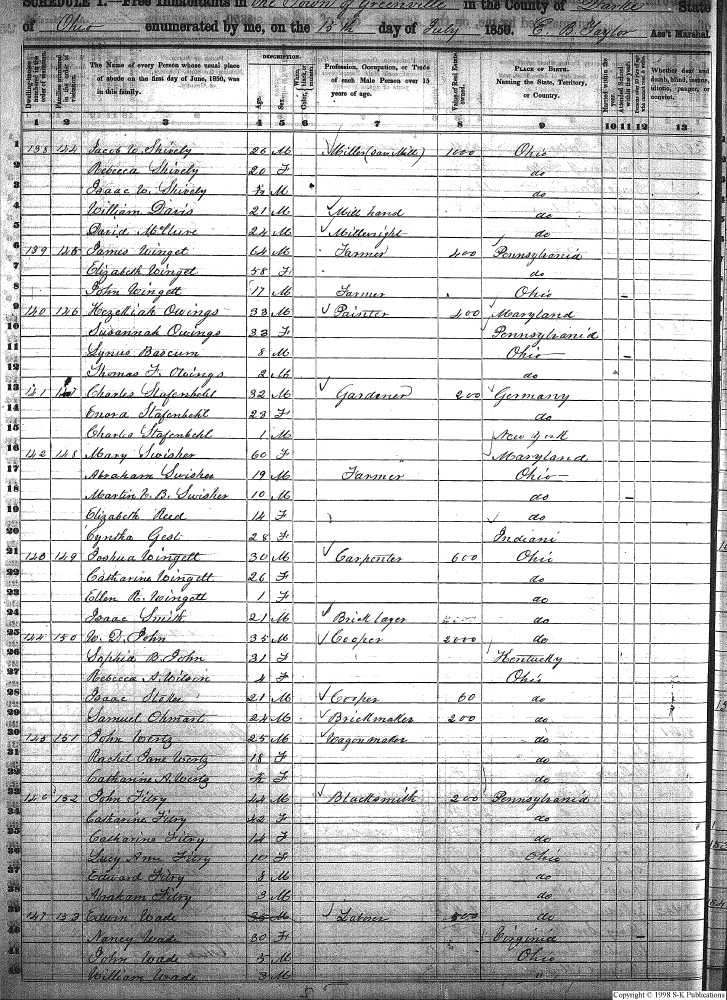 SCHEDULE I.—Free Inhabitants in the Town of Greenville in the County of Darke State
of Ohio enumerated by me, on the 15th day of July 1850. E B Taylor Ass't Marshal.
The Name of every Person whose usual place of abode on the first day of June, 1850, was in this family.
DESCRIPTION.
Age. Sex.
Profession, Occupation, or Trade of each Male Person over 15 years of age.
Value of Real Estate owned.
PLACE OF BIRTH. Naming the State, Territory, or Country.
Whether deaf and dumb, blind, insane, idiotic, pauper, or convict.
1 2 3 4 5 6 7 8 9 10 11 12 13
1 138 144 Jacob W. Shively 26 M Miller (Saw Mill) 1000 Ohio
2 Rebecca Shively 20 F do
3 Isaac W. Shively M do
4 William Davis 21 M Mill hand do
5 David McClure 24 M Millwright do
6 139 145 James Winget 64 M Farmer 400 Pennsylvania
7 Elizabeth Winget 58 F do
8 John Wingett 17 M Farmer Ohio
9 140 146 Hezekiah Owings 33 M Painter 400 Maryland
10 Susannah Owings 33 F Pennsylvania
11 Bascum 8 M Ohio
12 Thomas F. Owings 2 M do
13 141 Charles Stafenbehl 32 M Gardener 200 Germany
14 Stafenbehl 23 F do
15 Charles Stafenbehl 1 M New York
16 142 148 Mary Swisher 60 F Maryland
17 Abraham Swisher 19 M Farmer Ohio
18 Martin V. B. Swisher 10 M do
19 Elizabeth Reed 14 F do
20 Cyntha Gest 28 F Indiani
21 143 149 Joshua Wingett 30 M Carpenter 600 Ohio
22 Catharine Wingett 26 F do
23 Ellen R. Wingett 1 F do
24 Isaac Smith 21 M Brick layer do
25 144 150 W. D. John 35 M Cooper 2000 do
26 Sophia B. John 31 F Kentucky
27 Rebecca A. Wilson 4 F Ohio
28 Isaac Stokes 21 M Cooper 60 do
29 Samuel Ohmart 24 M Brickmaker 200 do
30 145 151 John Wertz 25 M Wagonmaker do
31 Rachel Jane Wertz 18 F do
32 Catharine A. Wertz F do
33 146 152 John Fitry 44 M Blacksmith 200 Pennsylvania
34 Catharine Fitry 42 F do
35 Catharine Fitry 14 F do
36 Lucy Ann Fitry 10 F Ohio
37 Edward Fitry 8 M do
38 Abraham Fitry 3 M do
39 147 153 Edwin Wade 35 M Laborer do
40 Nancy Wade 30 F Virginia
41 John Wade 5 M Ohio
42 William Wade 3 M "
Copyright © 1998 S-K Publications